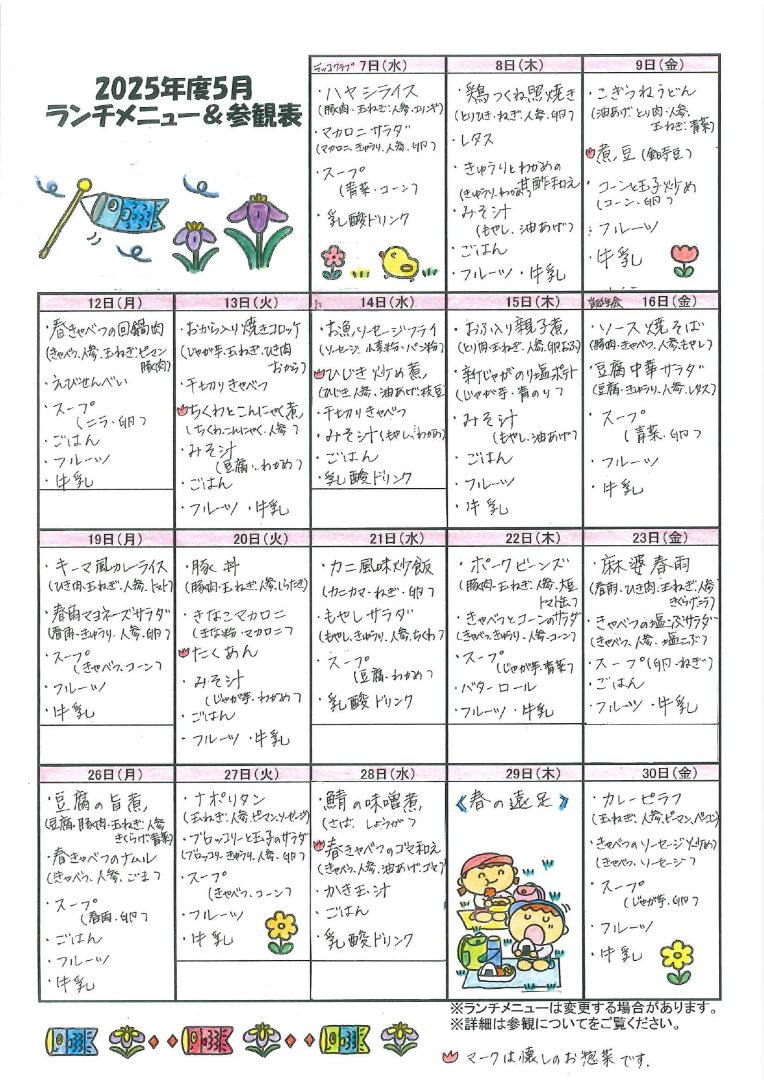 2025年度5月
ランチメニュー＆参観表
7日(水)
・ハヤシライス
(豚肉・玉ねぎ・人参・エリンギ)
・マカロニサラダ
(マカロニ・きゅうり・人参・卵)
・スープ
(青菜・コーン)
・乳酸ドリンク
8日(木)
・鶏つくね照焼き
(とりひき・ねぎ・人参・卵)
・レタス
・きゅうりとわかめの
甘酢和え
(きゅうり・わかめ)
・みそ汁
(もやし・油あげ)
・ごはん
・フルーツ・牛乳
9日(金)
・こぎつねうどん
(油あげ・とり肉・人参・
玉ねぎ・青菜)
煮豆(金時豆)
・コーンと玉子炒め
(コーン・卵)
・フルーツ
・牛乳
12日(月)
・春きゃべつの回鍋肉
(きゃべつ・人参・玉ねぎ・ピーマン
豚肉)
・えびせんべい
・スープ
(ニラ・卵)
・ごはん
・フルーツ
・牛乳
13日(火)
・おから入り焼きコロッケ
(じゃが芋・玉ねぎ・ひき肉
おから)
・千切りきゃべつ
ちくわとこんにゃく煮
(ちくわ・こんにゃく・人参)
・みそ汁
(豆腐・わかめ)
・ごはん
・フルーツ・牛乳
14日(水)
・お魚ソーセージフライ
(ソーセージ・小麦粉・パン粉)
ひじき炒め煮
(ひじき・人参・油あげ・枝豆)
・千切りきゃべつ
・みそ汁(もやし・わかめ)
・ごはん
・乳酸ドリンク
15日(木)
・おふ入り親子煮
(とり肉・玉ねぎ・人参・卵・おふ)
・新じゃがのり塩ポテト
(じゃが芋・青のり)
・みそ汁
(もやし・油あげ)
・ごはん
・フルーツ
・牛乳
誕生会 16日(金)
・ソース焼そば
(豚肉・きゃべつ・人参・もやし)
・豆腐中華サラダ
(豆腐・きゅうり・人参・レタス)
・スープ
(青菜・卵)
・フルーツ
・牛乳
19日(月)
・キーマ風カレーライス
(ひき肉・玉ねぎ・人参・トマト)
・春雨マヨネーズサラダ
(春雨・きゅうり・人参・卵)
・スープ
(きゃべつ・コーン)
・フルーツ
・牛乳
20日(火)
・豚丼
(豚肉・玉ねぎ・人参・しらたき)
・きなこマカロニ
(きな粉・マカロニ)
たくあん
・みそ汁
(じゃが芋・わかめ)
・ごはん
・フルーツ・牛乳
21日(水)
・カニ風味炒飯
(カニカマ・ねぎ・卵)
・もやしサラダ
(もやし・きゅうり・人参・ちくわ)
・スープ
(豆腐・わかめ)
・乳酸ドリンク
22日(木)
・ポークビーンズ
(豚肉・玉ねぎ・人参・大豆
トマト缶)
・きゃべつとコーンのサラダ
(きゃべつ・きゅうり・人参・コーン)
・スープ
(じゃが芋・青菜)
・バターロール
・フルーツ・牛乳
23日(金)
・麻婆春雨
(春雨・ひき肉・玉ねぎ・人参
きくらげ・ニラ)
・きゃべつの塩こぶサラダ
(きゃべつ・人参・塩こぶ)
・スープ(卵・ねぎ)
・ごはん
・フルーツ・牛乳
26日(月)
・豆腐の旨煮
(豆腐・豚肉・玉ねぎ・人参
きくらげ・青菜)
・春きゃべつのナムル
(きゃべつ・人参・ごま)
・スープ
(春雨・卵)
・ごはん
・フルーツ
・牛乳
27日(火)
・ナポリタン
(玉ねぎ・人参・ピーマン・ソーセージ)
・ブロッコリーと玉子のサラダ
(ブロッコリー・きゅうり・人参・卵)
・スープ
(きゃべつ・コーン)
・フルーツ
・牛乳
28日(水)
・鯖の味噌煮
(さば・しょうが)
春きゃべつのゴマ和え
(きゃべつ・人参・油あげ・ゴマ)
・かき玉汁
・ごはん
・乳酸ドリンク
29日(木)
《春の遠足》
30日(金)
・カレーピラフ
(玉ねぎ・人参・ピーマン・ベーコン)
・きゃべつのソーセージ炒め
(きゃべつ・ソーセージ)
・スープ
(じゃが芋・卵)
・フルーツ
・牛乳
※ランチメニューは変更する場合があります。
※詳細は参観についてをご覧ください。
マークは懐しのお惣菜です。